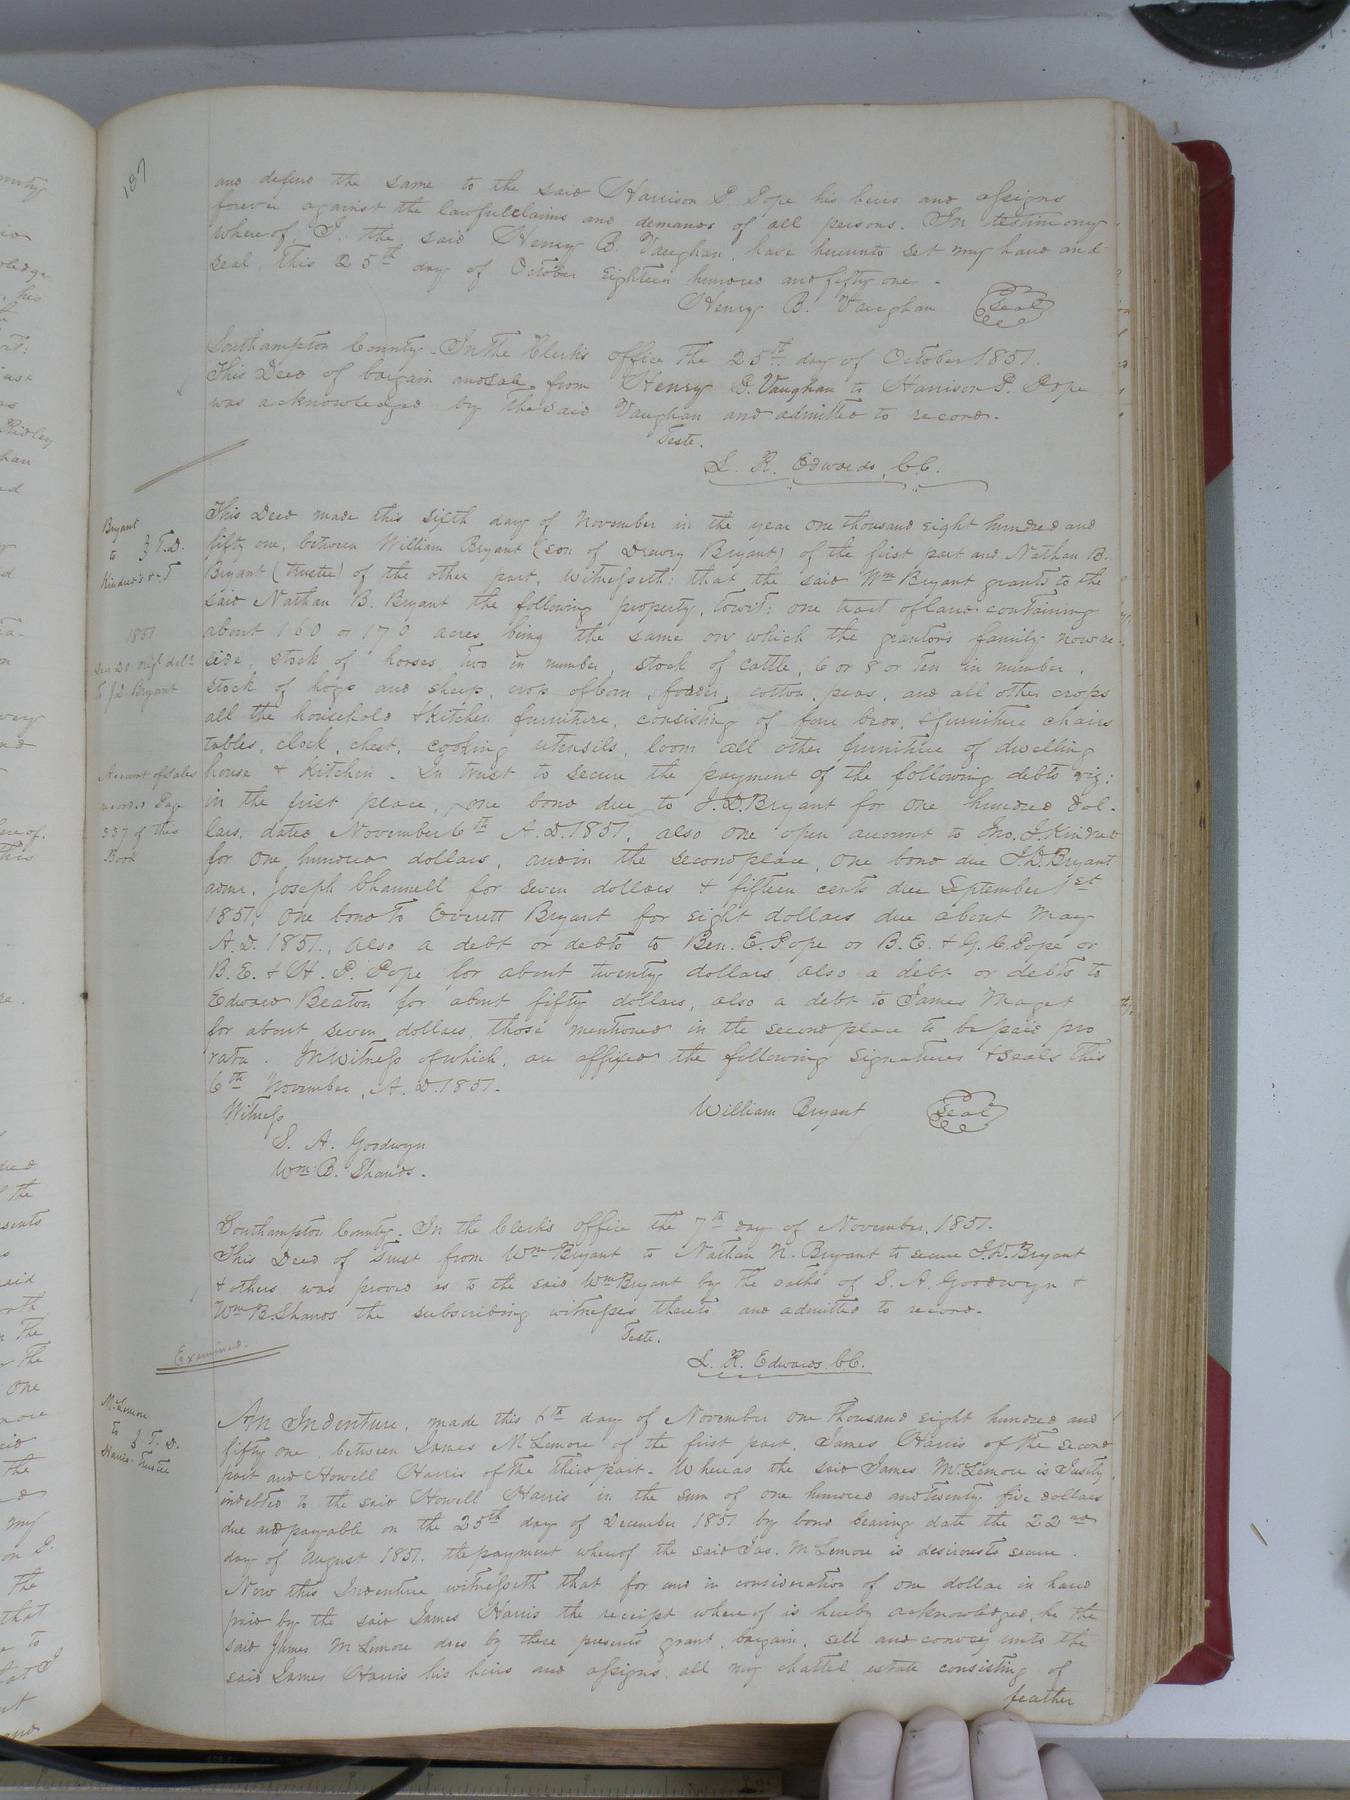 187
and defend the same to the said Harrison P. Pope his heirs and assigns
forever against the lawful claims and demands of all persons. In testimony
whereof, I, the said Henry B. Vaughan, have hereunto set my hand and
seal, this 25th day of October Eighteen hundred and fifty one -
Henry B. Vaughan Seal
Southampton County - In the Clerk's office the 25th day of October 1851.
This Deed of bargain and sale from Henry B. Vaughan to Harrison P. Pope
was acknowledged by the said Vaughan and admitted to record.
Teste.
L. R. Edwards, CC.
Bryant
to } T.D.
Kindred &c T
1851
Dec 20 Origl deld
to J D Bryant
Account of sales
record Page
337 of this
Book
This Deed made this sixth day of November in the year one thousand eight hundred and
fifty one, between William Bryant (son of Drewry Bryant) of the first part and Nathan B.
Bryant (trustee) of the other part, witnesseth: that the said Wm Bryant grants to the
said Nathan B. Bryant the following property, towit: one tract of land containing
about 160 or 170 acres being the same on which the grantors family now re-
side, stock of horses, two in number, stock of cattle, 6 or 8 or ten in number,
stock of hogs and sheep, crop of corn, fodder, cotton, peas, and all other crops
all the household & kitchen furniture, consisting of four beds, & furniture chairs
tables, clock, chest, cooking utensils, loom all other furniture of dwelling
house & Kitchen - In trust to secure the payment of the following debts viz:
in the first place, one bond due to J.D. Bryant for one hundred dol-
lars, dated November 6th A.D. 1851, also one open account to Jno. J. Kindred
for one hundred dollars, and in the second place, one bond due J.D. Bryant
admr. Joseph Channell for seven dollars & fifteen cents due September 1st
1851, one bond to Everett Bryant for eight dollars due about May
A.D. 1851, also a debt or debts to Ben. E. Pope or B.E. & G.C. Pope or
B.E. & H.P. Pope for about twenty dollars also a debt or debts to
Edward Beaton for about fifty dollars, also a debt to James Maget
for about seven dollars, those mentioned in the second place to be paid pro
rata. In witness of which, are affixed the following signatures & seals this
6th November, A.D. 1851.
Witness William Bryant Seal
S. A. Goodwyn
Wm. B. Shands.
Southampton County - In the Clerk's office the 7th day of November, 1851.
This Deed of trust from Wm Bryant to Nathan N. Bryant to secure J.D. Bryant
& others was proved as to the said Wm Bryant by the oaths of S. A. Goodwyn &
Wm B. Shands the subscribing witnesses thereto and admitted to record.
Teste.
Examined.
L. R. Edwards CC.
McLemore
to } T. D.
Harris Trustee
An Indenture, made this 6th day of November one thousand eight hundred and
fifty one, between James McLemore of the first part, James Harris of the second
part and Howell Harris of the third part - Whereas the said James McLemore is Justly
indebted to the said Howell Harris in the sum of one hundred and twenty five dollars
due and payable on the 25th day of December 1851 by bond bearing date the 22nd
day of August 1851, the payment whereof the said Jas. McLemore is desirous to secure.
Now this Indenture witnesseth that for and in consideration of one dollar in hand
paid by the said James Harris the receipt whereof is hereby acknowledged, he the
said James McLemore does by these presents grant, bargain, sell and convey unto the
said James Harris his heirs and assigns, all my chattel estate consisting of
feather